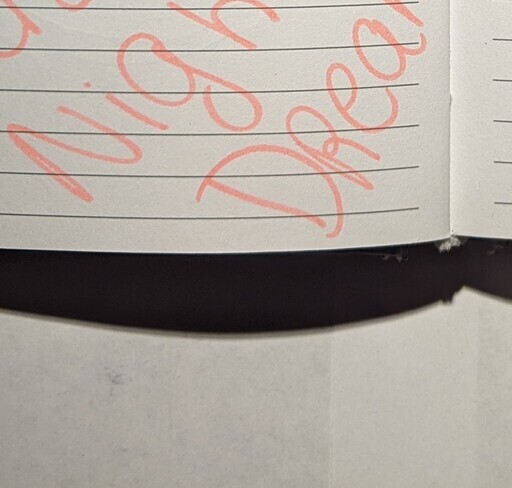 Nigh
Drea